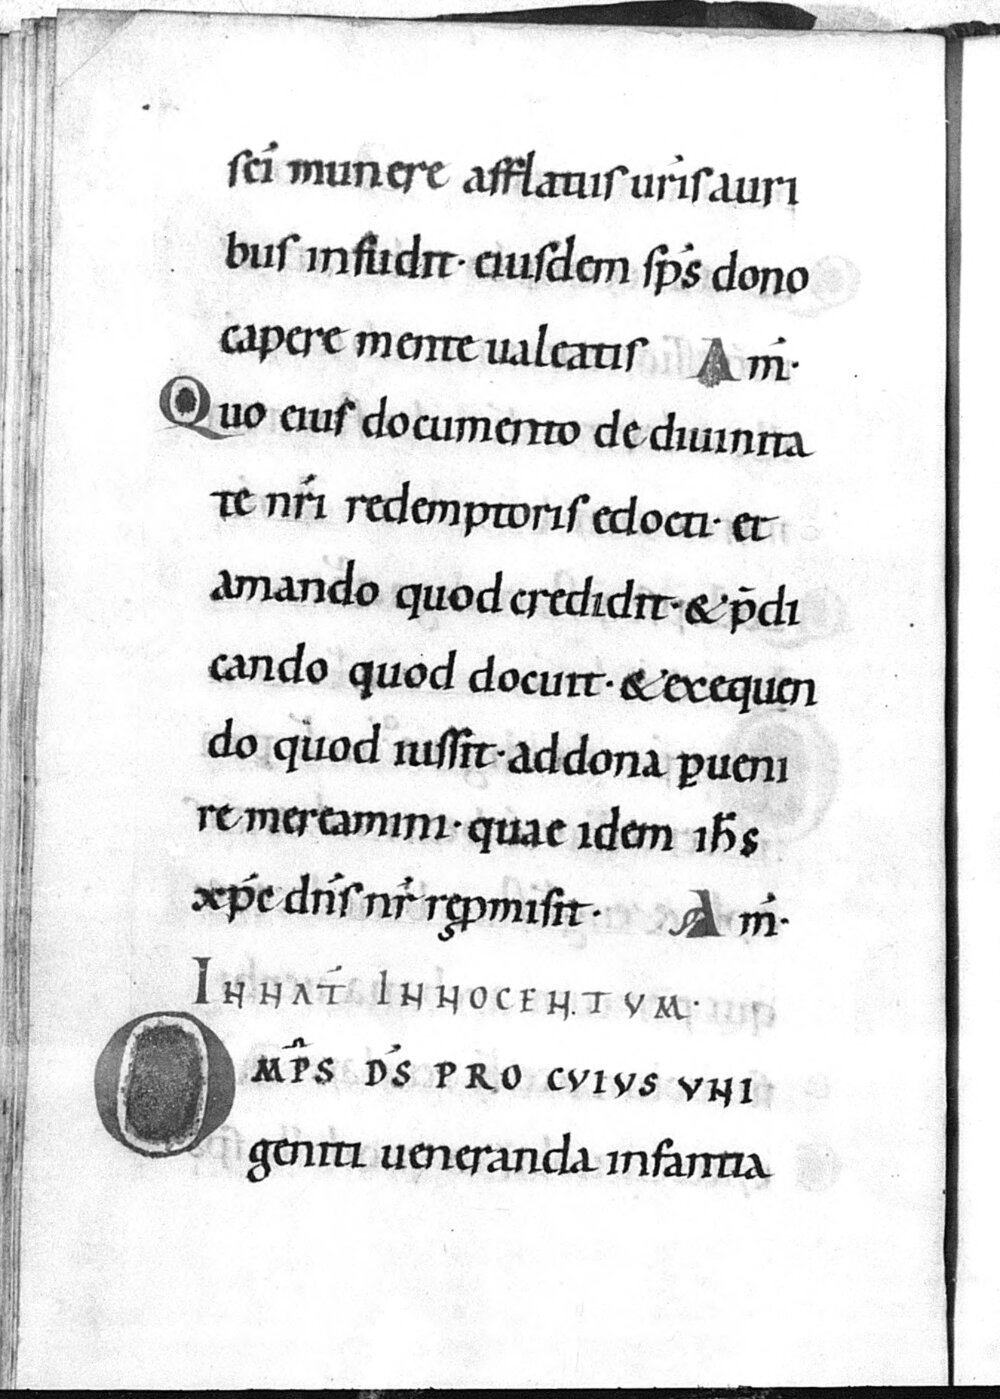 sci munere afflatus uris auri
bus infudit· eiusdem sps dono
capere mente ualeatis Am̄·
Quo eius documento de diuinita
te nri redemptoris edocti· et
amando quod credidit· & p̄di
cando quod docuit· & exequen
do quod iussit· ad dona ꝑueni
re mereamini· quae idem ihs
xpc dns nr repmisit· Am̄·
IN NAT INNOCENTVM·
OMPS DS PRO CVIVS VNI
geniti ueneranda infantia